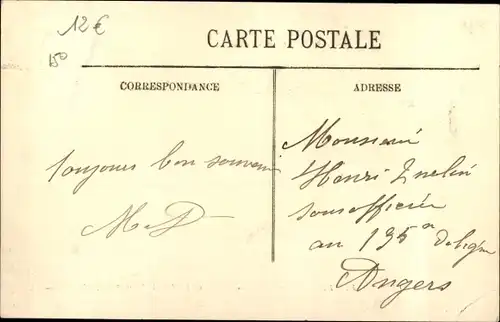 12€
150
CARTE POSTALE
CORRESPONDANCE
ADRESSE
toujours bon souvenir
M-D
Monsieur
Henri
sousofficier
au 135e de ligne
Angers